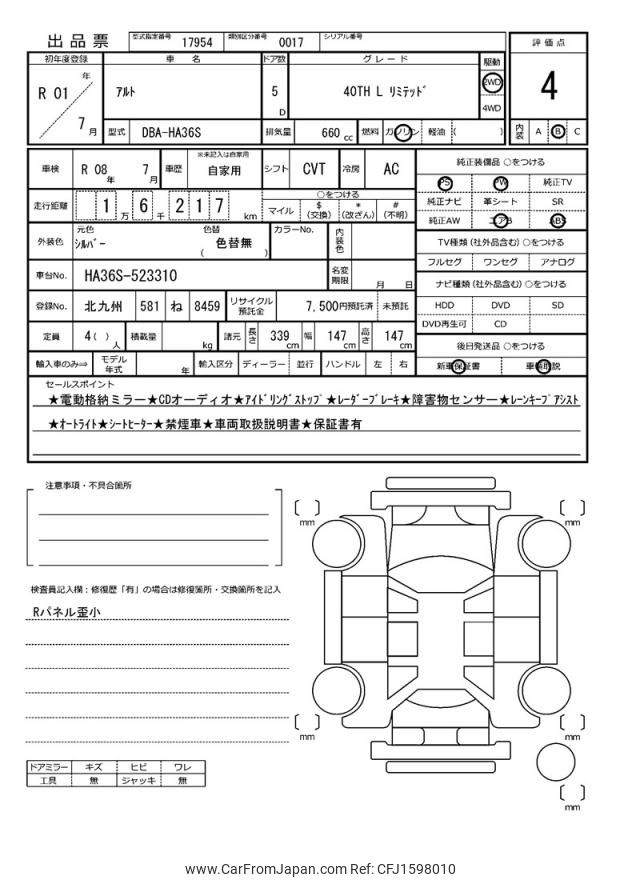 出品票 型式指定番号 17954 類別区分番号 0017 シリアル番号
評価点
初年度登録 車名 ドア数 グレード 駆動
R 01 年 7 月 アルト 5 D 40TH L リミテッド 2WD 4WD
4
型式 DBA-HA36S 排気量 660 cc 燃料 ガソリン 軽油 ( )
内装 A B C
車検 R 08 年 7 月 車歴 ※未記入は自家用 自家用 シフト CVT 冷房 AC
純正装備品 ○をつける
PS PW 純正TV
走行距離 1 万 6 千 2 1 7 km ○をつける
マイル $(交換) *(改ざん) #(不明)
純正ナビ 革シート SR
純正AW エアB ABS
外装色 元色 シルバー 色替 ( 色替無 ) カラーNo. 内装色
TV種類 (社外品含む) ○をつける
フルセグ ワンセグ アナログ
車台No. HA36S-523310 名変期限 月 日
ナビ種類 (社外品含む) ○をつける
登録No. 北九州 581 ね 8459 リサイクル預託金 7,500円預託済 未預託
HDD DVD SD
DVD再生可 CD
定員 4 ( ) 人 積載量 kg 諸元 長さ 339 cm 幅 147 cm 高さ 147 cm
後日発送品 ○をつける
輸入車のみ⇒ モデル年式 年 輸入区分 ディーラー 並行 ハンドル 左 右
新車保証書 車輌取説
セールスポイント
★電動格納ミラー★CDオーディオ★アイドリングストップ★レーダーブレーキ★障害物センサー★レーンキープアシスト
★オートライト★シートヒーター★禁煙車★車両取扱説明書★保証書有
注意事項・不具合箇所
検査員記入欄：修復歴「有」の場合は修復箇所・交換箇所を記入
Rパネル歪小
mm
mm
mm
mm
mm
ドアミラー キズ ヒビ ワレ
工具 無 ジャッキ 無
www.CarFromJapan.com Ref: CFJ1598010